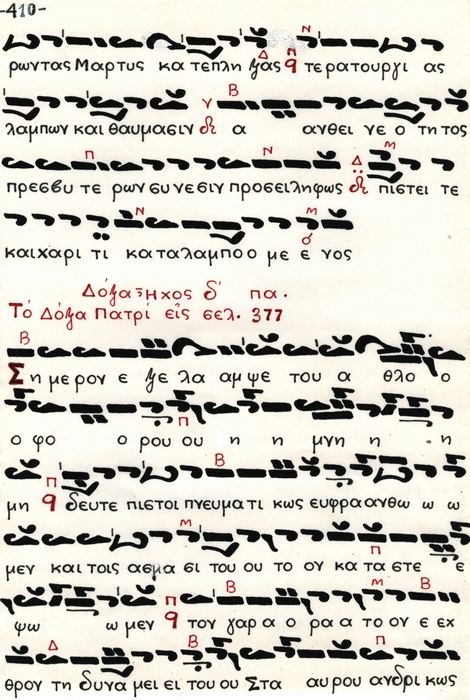 -410-
ρωντας Μαρτυς κα τε πλη ξας τερατουργι ας
λαμπων και θαυμασιν δι α ανθει νε ο τη τος
πρεσβυ τε ρων συ νε σιν προσειληφως πιστει τε
και χαρι τι κα τα λαμπο ο με ε νος
Δόξα Ἦχος δ' πα.
Τό Δόξα Πατρί είς σελ. 377
Ση με ρον ε ξε λα αμ ψε του α θλο ο
ο φο ο ρου ου η η μνη η η
μη δευτε πιστοι πνευμα τι κως ευφρα ανθω ω ω
μεν και τοις α σμα σι του ου το ον κα τα στε ε
ψω ω μεν τον γαρ α ο ρα α το ον ε εχ
θρον τη δυνα μει ει του ου Στα αυ ρου ανδρι κως